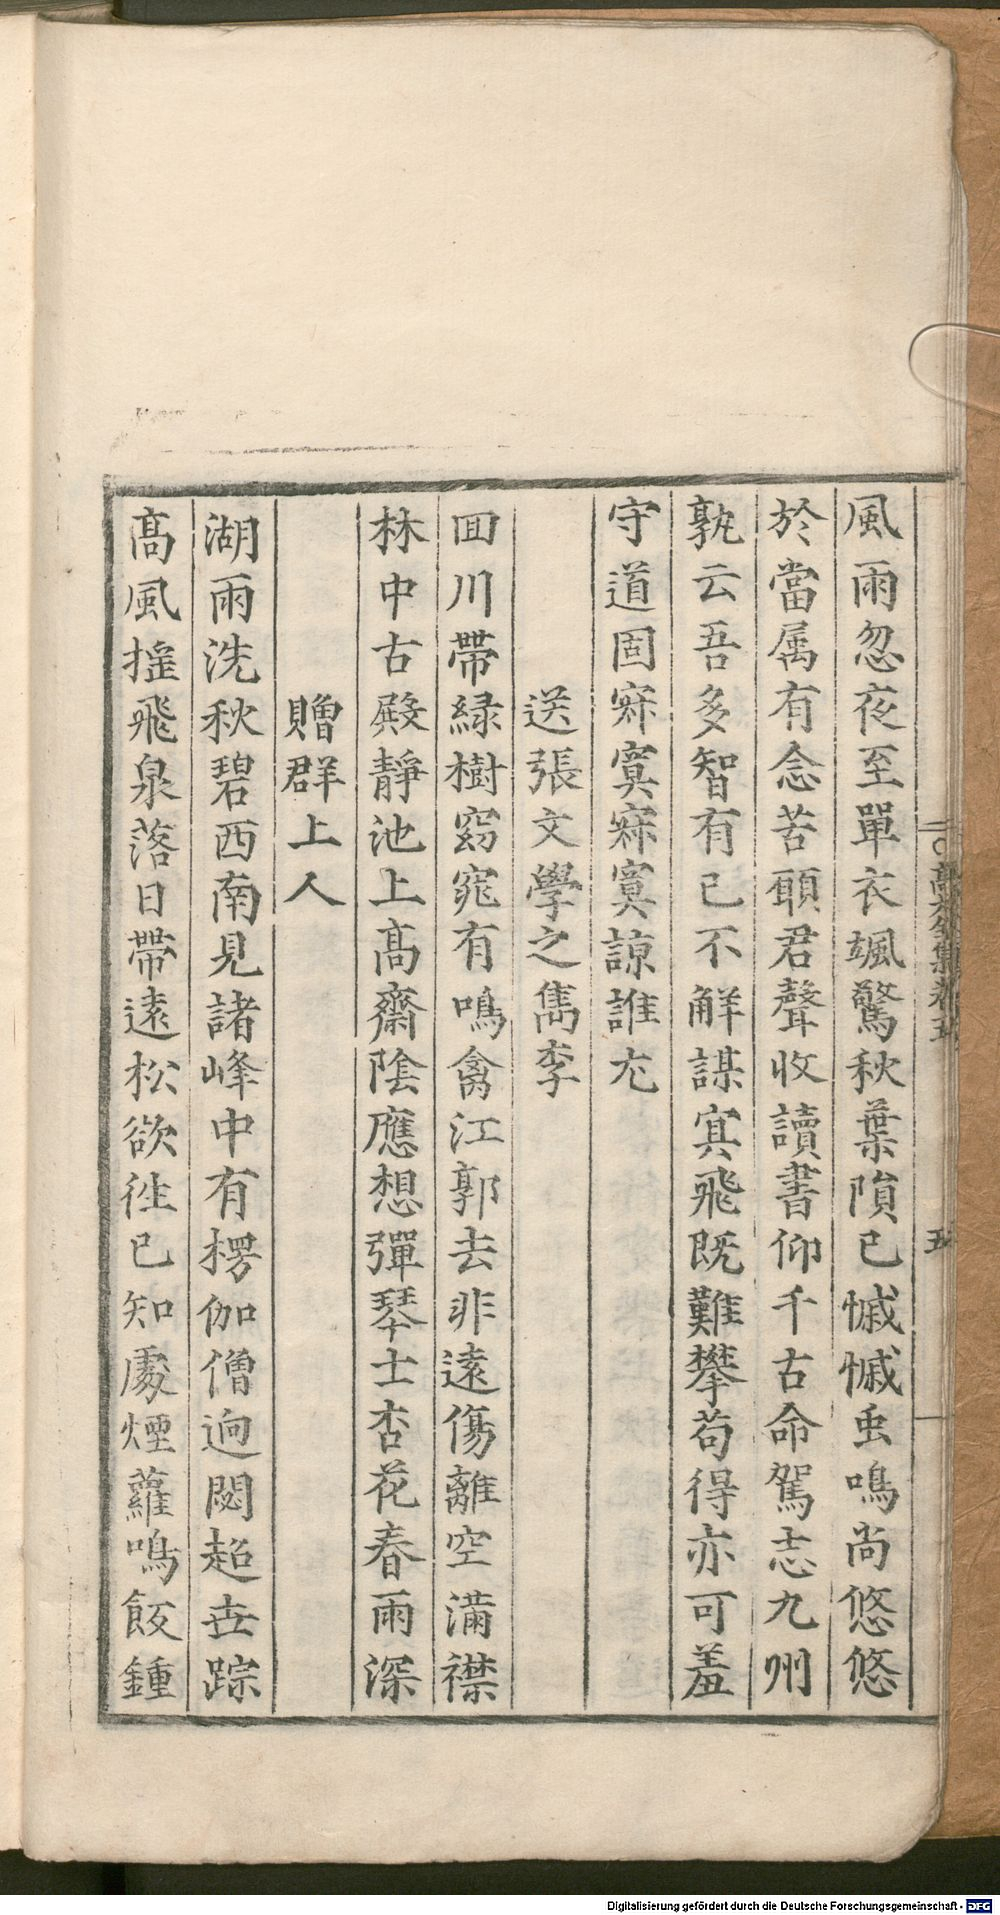 風雨忽夜至單衣颯驚秋葉隕已慽慽虫鳴尚悠悠
於當属有念苦頋君聲收讀書仰千古命駕志九州
孰云吾多智有己不觧謀寘飛既難攀苟得亦可羞
守道固寂寞寂寞諒誰尤
送張文學之雋李
回川帶緑樹窈窕有鳴禽江郭去非遠傷離空滿襟
林中古殿靜池上髙齋陰應想彈琴士杏花春雨深
贈群上人
湖雨洗秋碧西南見諸峰中有楞伽僧逈閟超世踪
髙風摇飛泉落日帶遠松欲徃已知處煙蘿鳴飯鍾
五
Digitalisierung gefördert durch die Deutsche Forschungsgemeinschaft - DFG